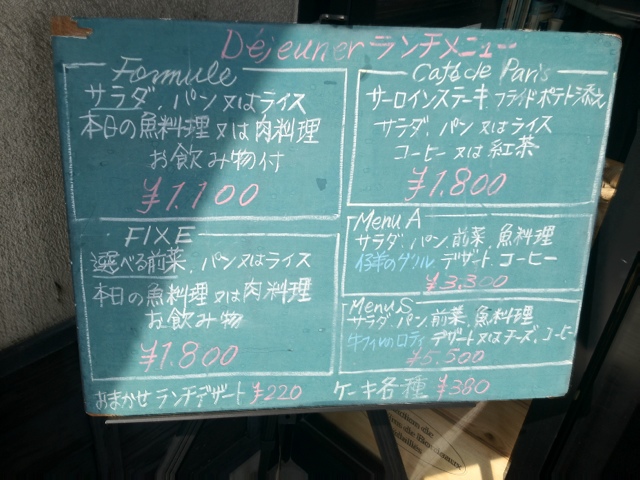 Déjeuner ランチメニュー
Formule
サラダ、パン又はライス
本日の魚料理又は肉料理
お飲み物付
¥1.100
Café de Paris
サーロインステーキ、フライドポテト添え
サラダ、パン又はライス
コーヒー又は紅茶
¥1.800
FIXE
選べる前菜、パン又はライス
本日の魚料理又は肉料理
お飲み物
¥1.800
Menu A
サラダ、パン、前菜、魚料理
仔羊のグリル デザート、コーヒー
¥3,300
Menu S
サラダ、パン、前菜、魚料理
牛フィレのロティ デザート又はチーズ、コーヒー
¥5,500
おまかせ ランチデザート ¥220
ケーキ各種 ¥380